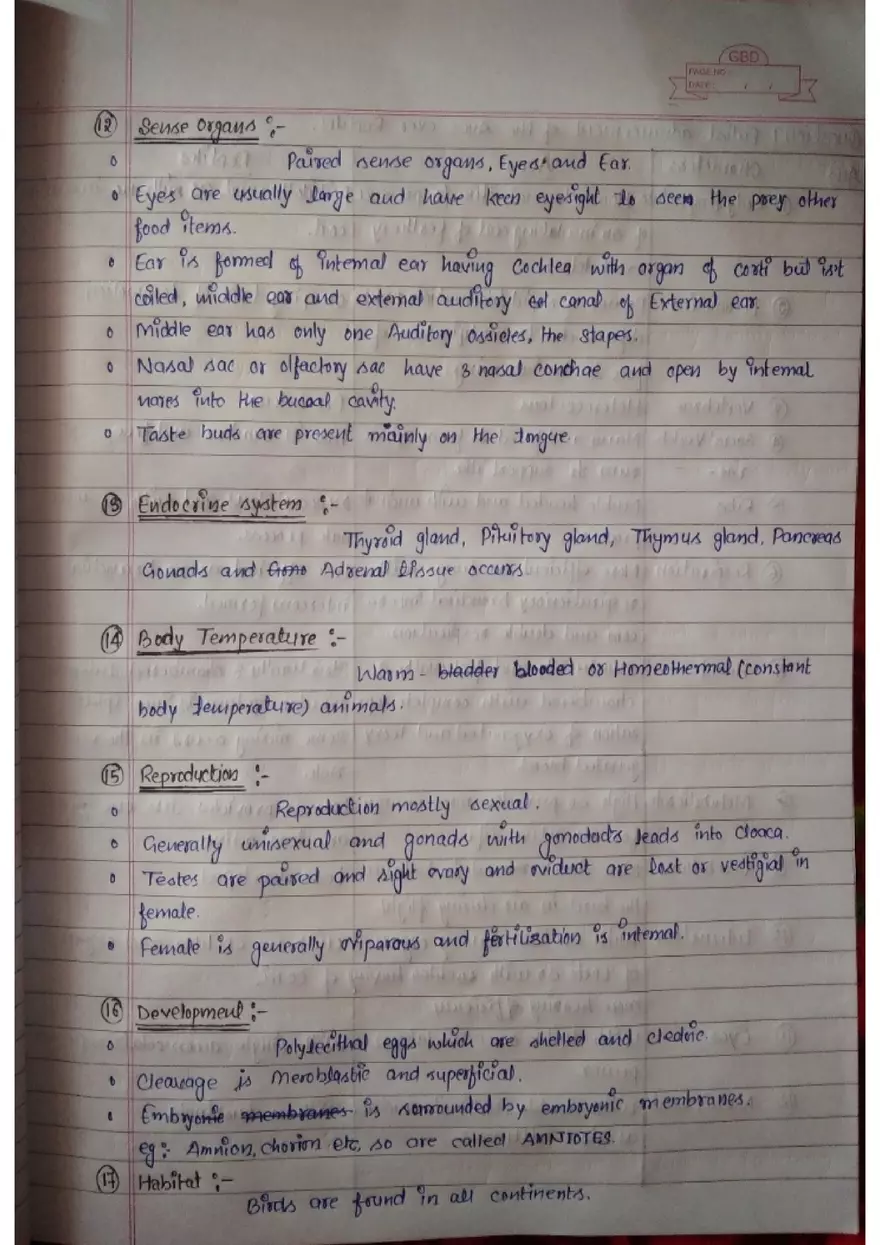 GBD
PAGE NO :
DATE : / /
(12) Sense Organs :-
Paired sense organs, Eyes and Ear.
Eyes are usually large and have keen eyesight to seen the prey other
food items.
Ear is formed of internal ear having Cochlea with organ of corti but isn't
coiled, middle ear and external auditory canal of External ear.
Middle ear has only one Auditory ossicles, the stapes.
Nasal sac or olfactory sac have 3 nasal conchae and open by internal
nares into the buccal cavity.
Taste buds are present mainly on the tongue
(13) Endocrine system :-
Thyroid gland, Pituitory gland, Thymus gland, Pancreas
Gonads and Gono Adrenal tissue occurs
(14) Body Temperature :-
Warm - bladder blooded or Homeothermal (constant
body temperature) animals.
(15) Reproduction :-
Reproduction mostly sexual.
Generally unisexual and gonads with gonoducts leads into cloaca.
Testes are paired and right ovary and oviduct are lost or vestigial in
female.
Female is generally oviparous and fertilization is internal.
(16) Development :-
Polylecithal eggs which are shelled and cledoic.
Cleavage is Meroblastic and superficial.
Embryonic membranes is sorrounded by embryonic membranes.
eg :- Amnion, chorion etc, so are called AMNIOTES.
(17) Habitat :-
Birds are found in all continents.